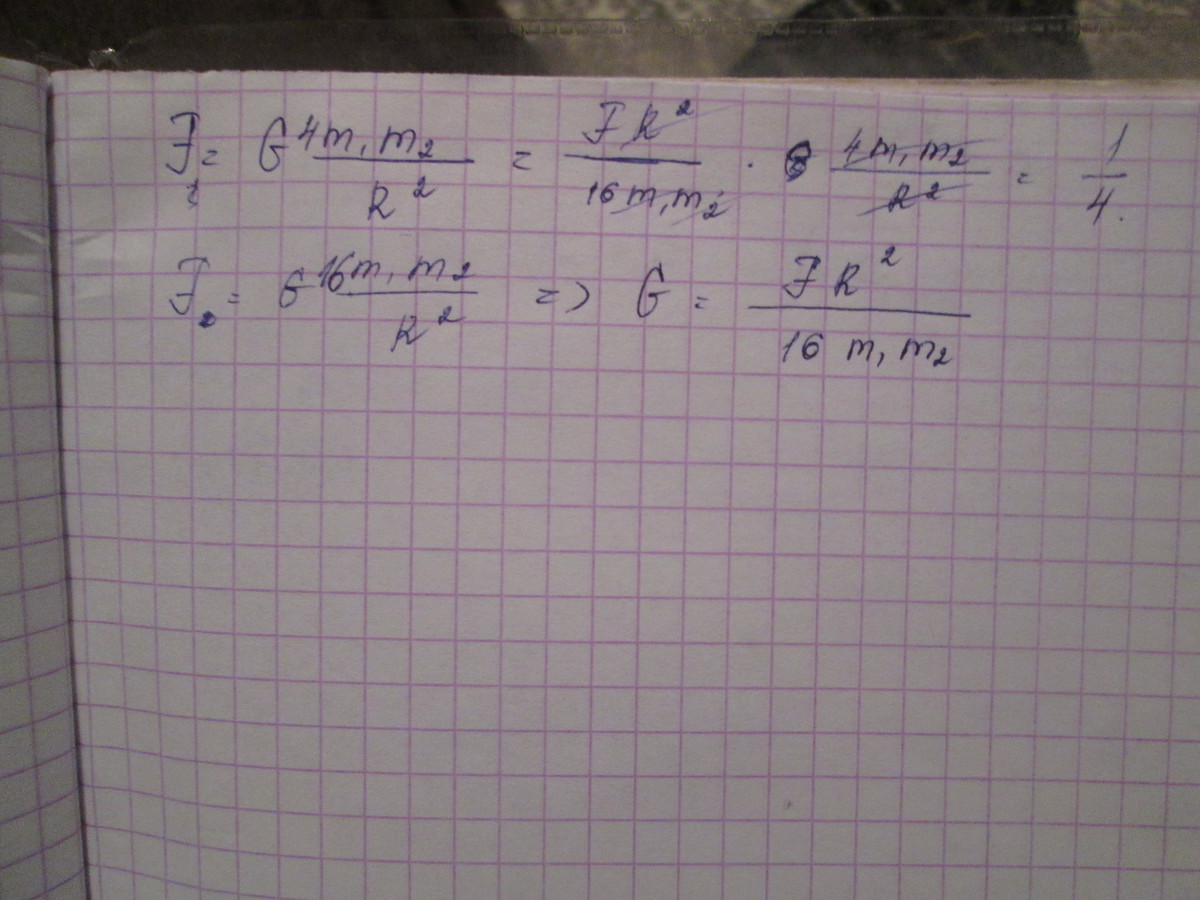 F₁ = G 4m₁m₂ / R² = FR² / 16m₁m₂ · 4m₁m₂ / R² = 1 / 4.
F₂ = G 16m₁m₂ / R² => G = FR² / 16 m₁m₂